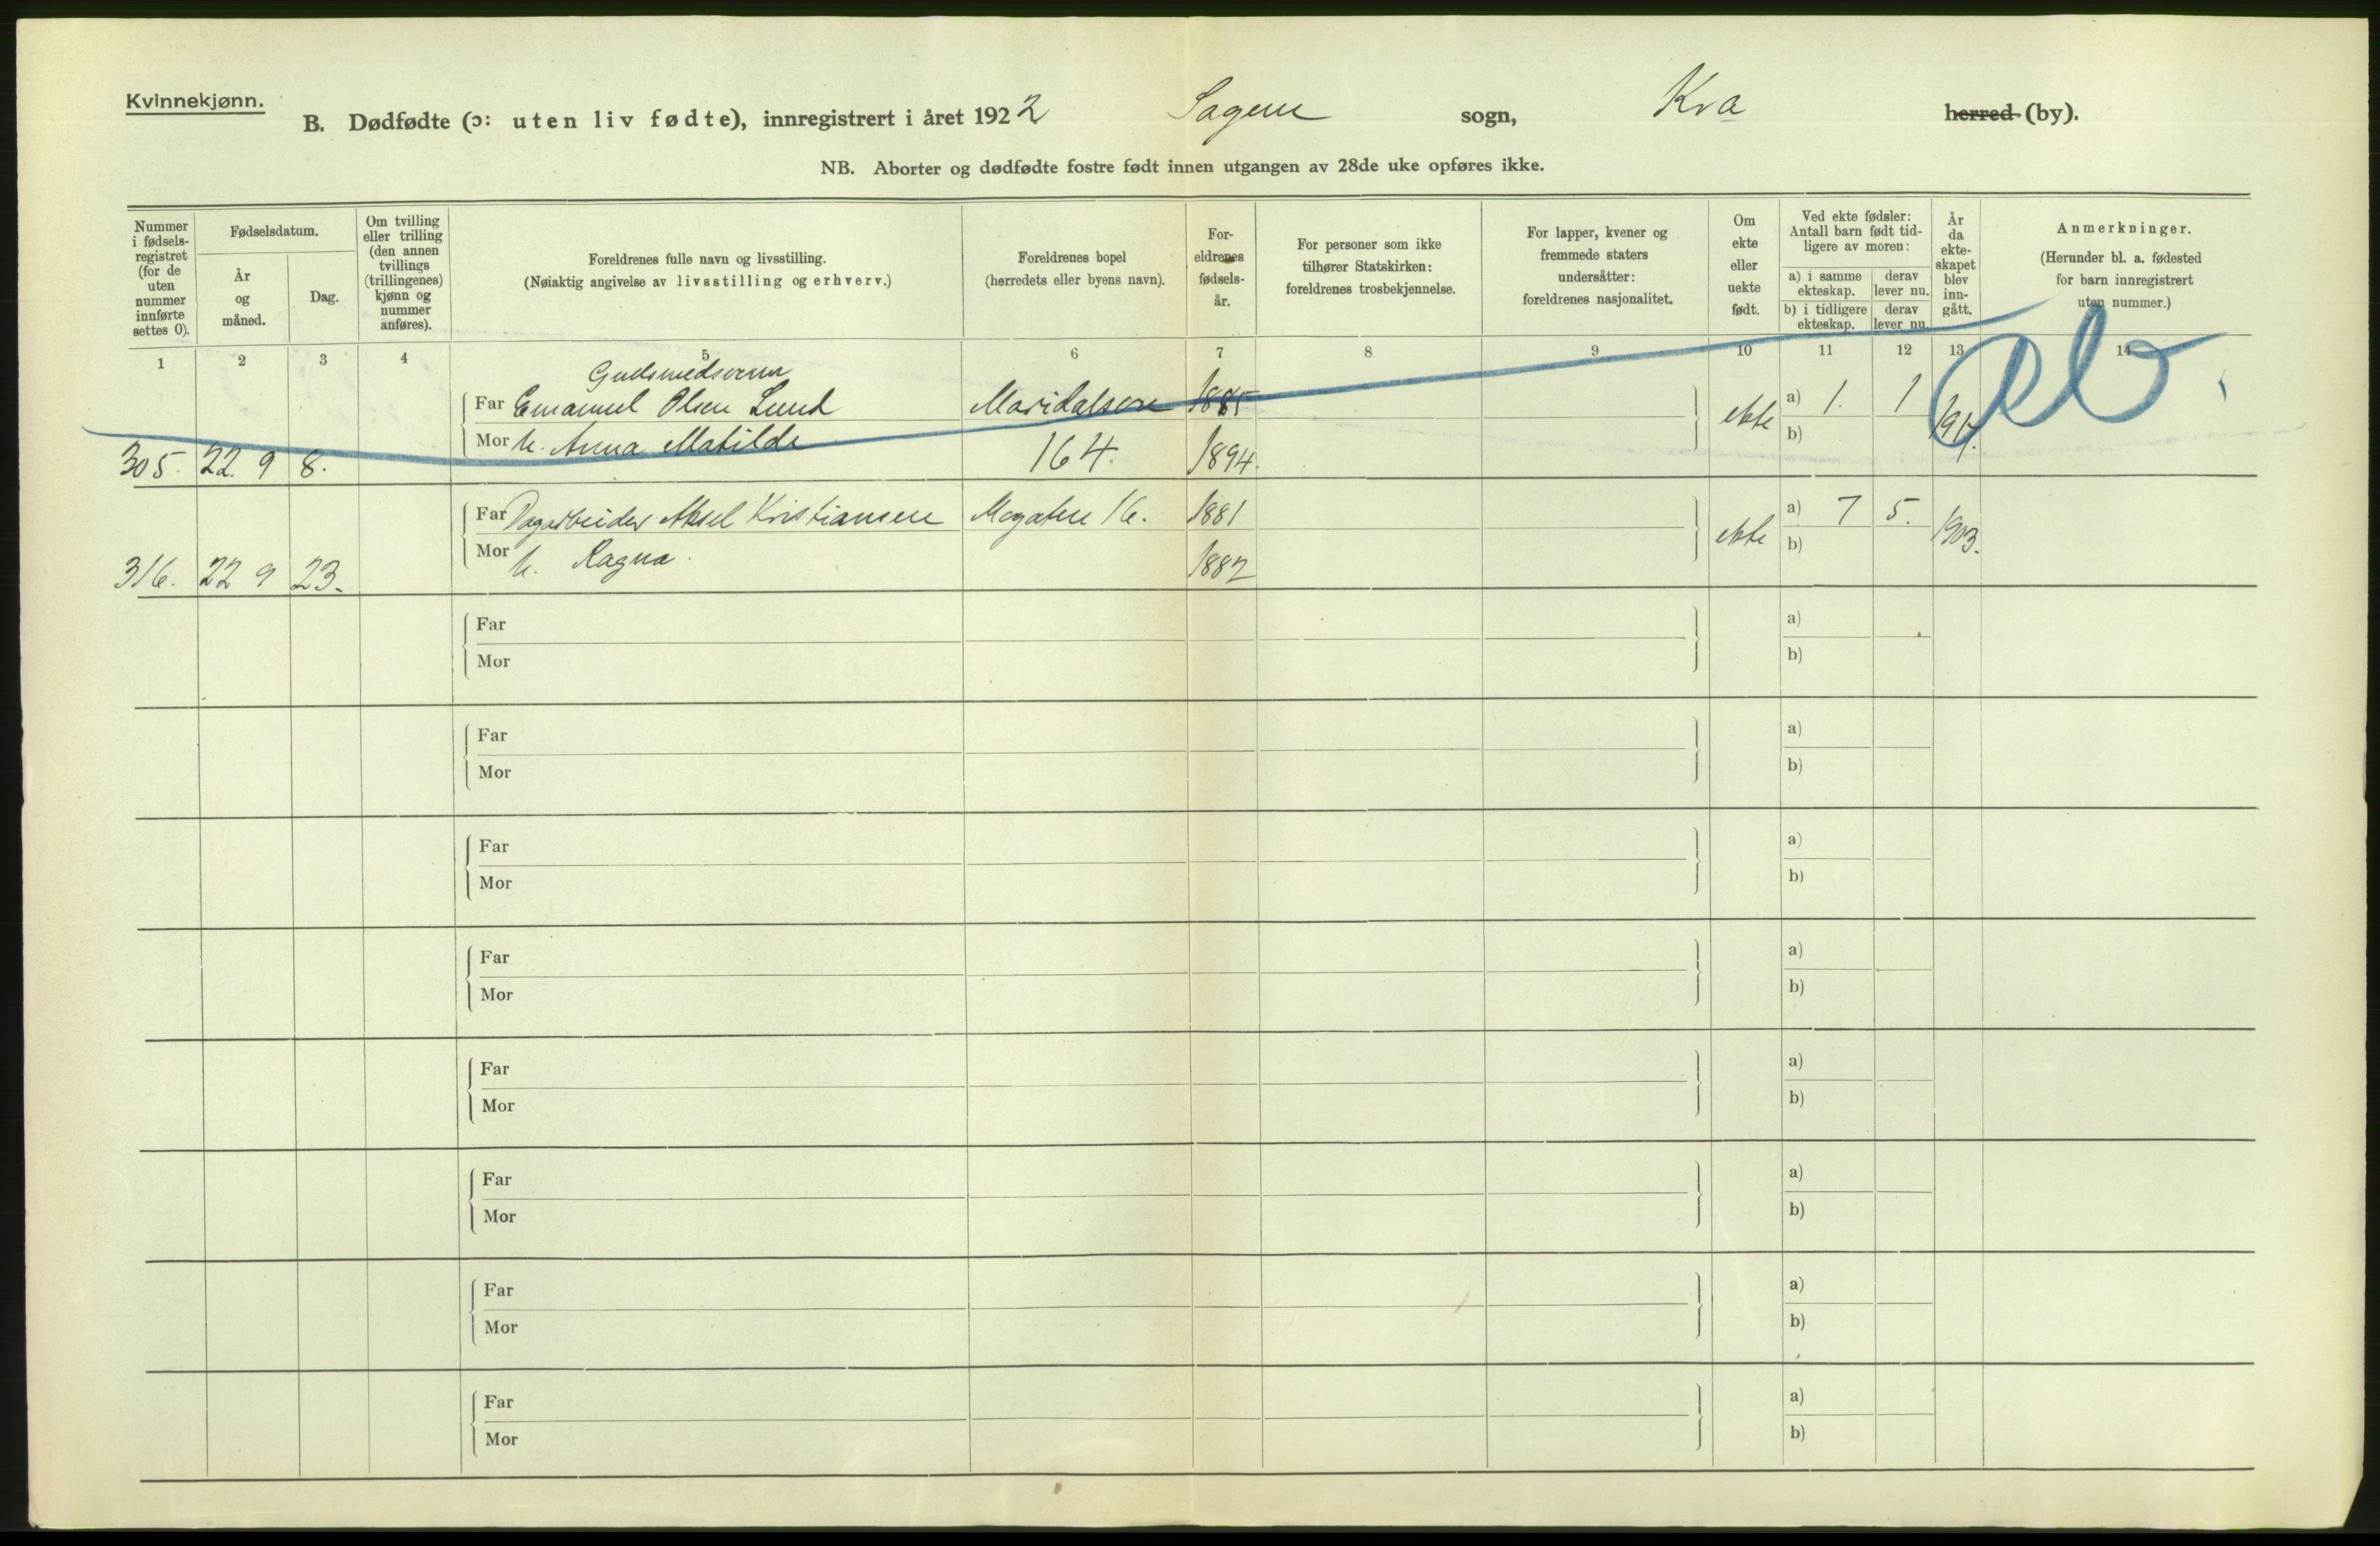 Kvinnekjønn.
B. Dødfødte (ɔ: uten liv fødte), innregistrert i året 1922 Sagene sogn, Kra herred (by).
NB. Aborter og dødfødte fostre født innen utgangen av 28de uke opføres ikke.
Nummer i fødsels-registret (for de uten nummer innførte settes 0).
Fødselsdatum.
År og måned.
Dag.
Om tvilling eller trilling (den annen tvillings (trillingenes) kjønn og nummer anføres).
Foreldrenes fulle navn og livsstilling.
(Nøiaktig angivelse av livsstilling og erhverv.)
Foreldrenes bopel
(herredets eller byens navn).
For-eldrenes fødsels-år.
For personer som ikke tilhører Statskirken: foreldrenes trosbekjennelse.
For lapper, kvener og fremmede staters undersåtter: foreldrenes nasjonalitet.
Om ekte eller uekte født.
Ved ekte fødsler: Antall barn født tid-ligere av moren:
a) i samme ekteskap.
derav lever nu.
b) i tidligere ekteskap.
derav lever nu.
År da ekte-skapet blev inn-gått.
Anmerkninger.
(Herunder bl. a. fødested for barn innregistrert uten nummer.)
1 2 3 4 5 6 7 8 9 10 11 12 13 14
Far Emanuel Olsen Lund 1885 a) 1. 1
305. 22 9 8. Mor h. Anna Matilde 164. 1894. ekte b)
Far Dagarbeider Aksel Kristiansen 16. 1881 a) 7 5. 1903.
316. 22 9 23. Mor h. Ragna. 1882 ekte b)
Far a)
Mor b)
Far a)
Mor b)
Far a)
Mor b)
Far a)
Mor b)
Far a)
Mor b)
Far a)
Mor b)
Far a)
Mor b)
Far a)
Mor b)